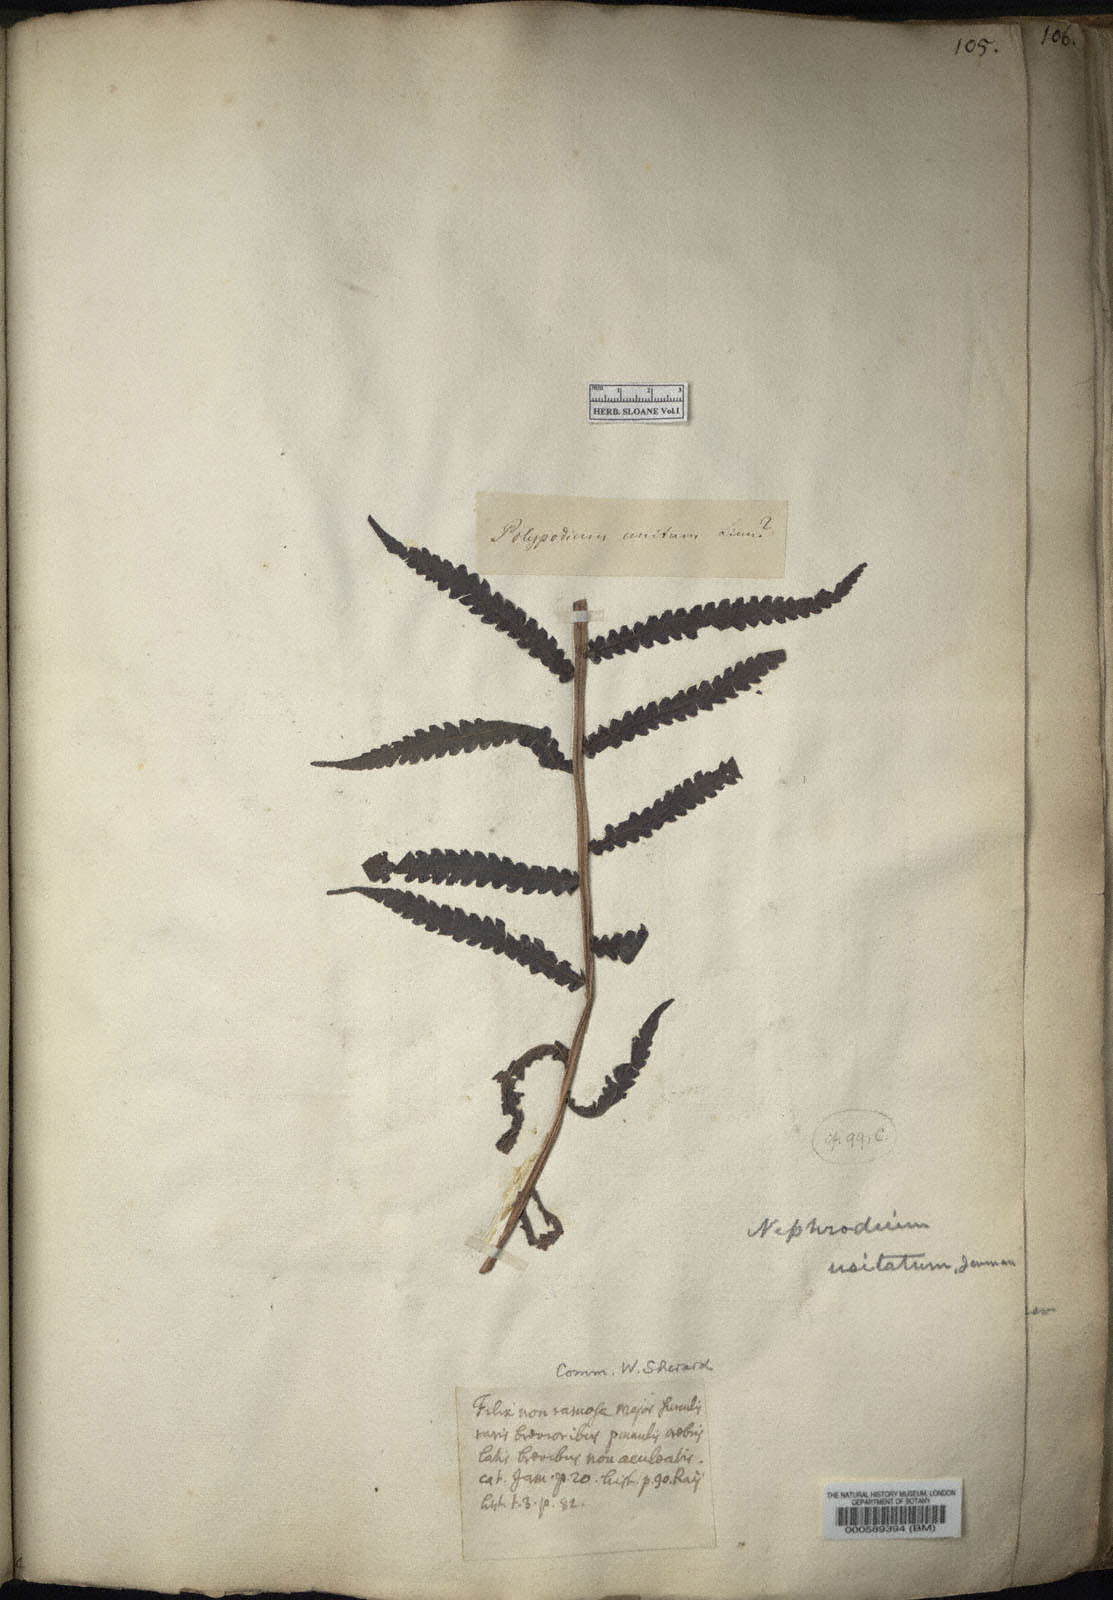 105.
106.
mm 1 2 3
HERB. SLOANE Vol.1
Polypodium unitum Linn?
cf. 99, C.
Nephrodium
usitatum, Jenman
Comm. W. Sherard
Filix non ramosa major surculis
raris brevioribus pinnulis crebris
latis brevibus non aculeatis.
cat. Jam. p. 20. hist. p. 90. Raij
hist. t. 3. p. 82.
THE NATURAL HISTORY MUSEUM, LONDON
DEPARTMENT OF BOTANY
000589394 (BM)